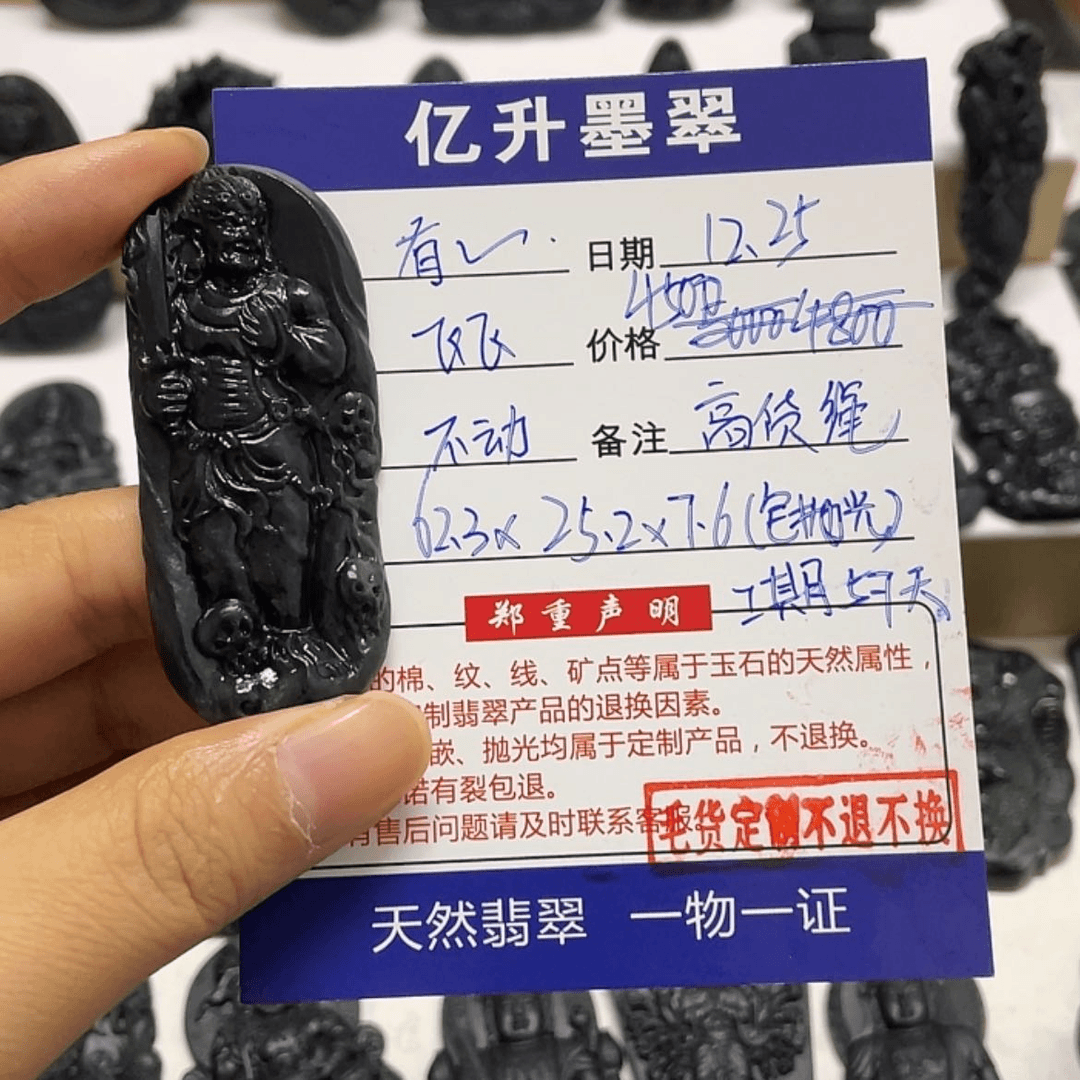 亿升墨翠
日期 12.25
4500
价格 5000 4800
飞飞
不动 备注 高货绳
62.3x 25.2x7.6(包抛光)
工期 5-7天
郑重声明
的棉、纹、线、矿点等属于玉石的天然属性，
制翡翠产品的退换因素。
嵌、抛光均属于定制产品，不退换。
诺有裂包退。
有售后问题请及时联系客服。
毛货定制不退不换
天然翡翠 一物一证